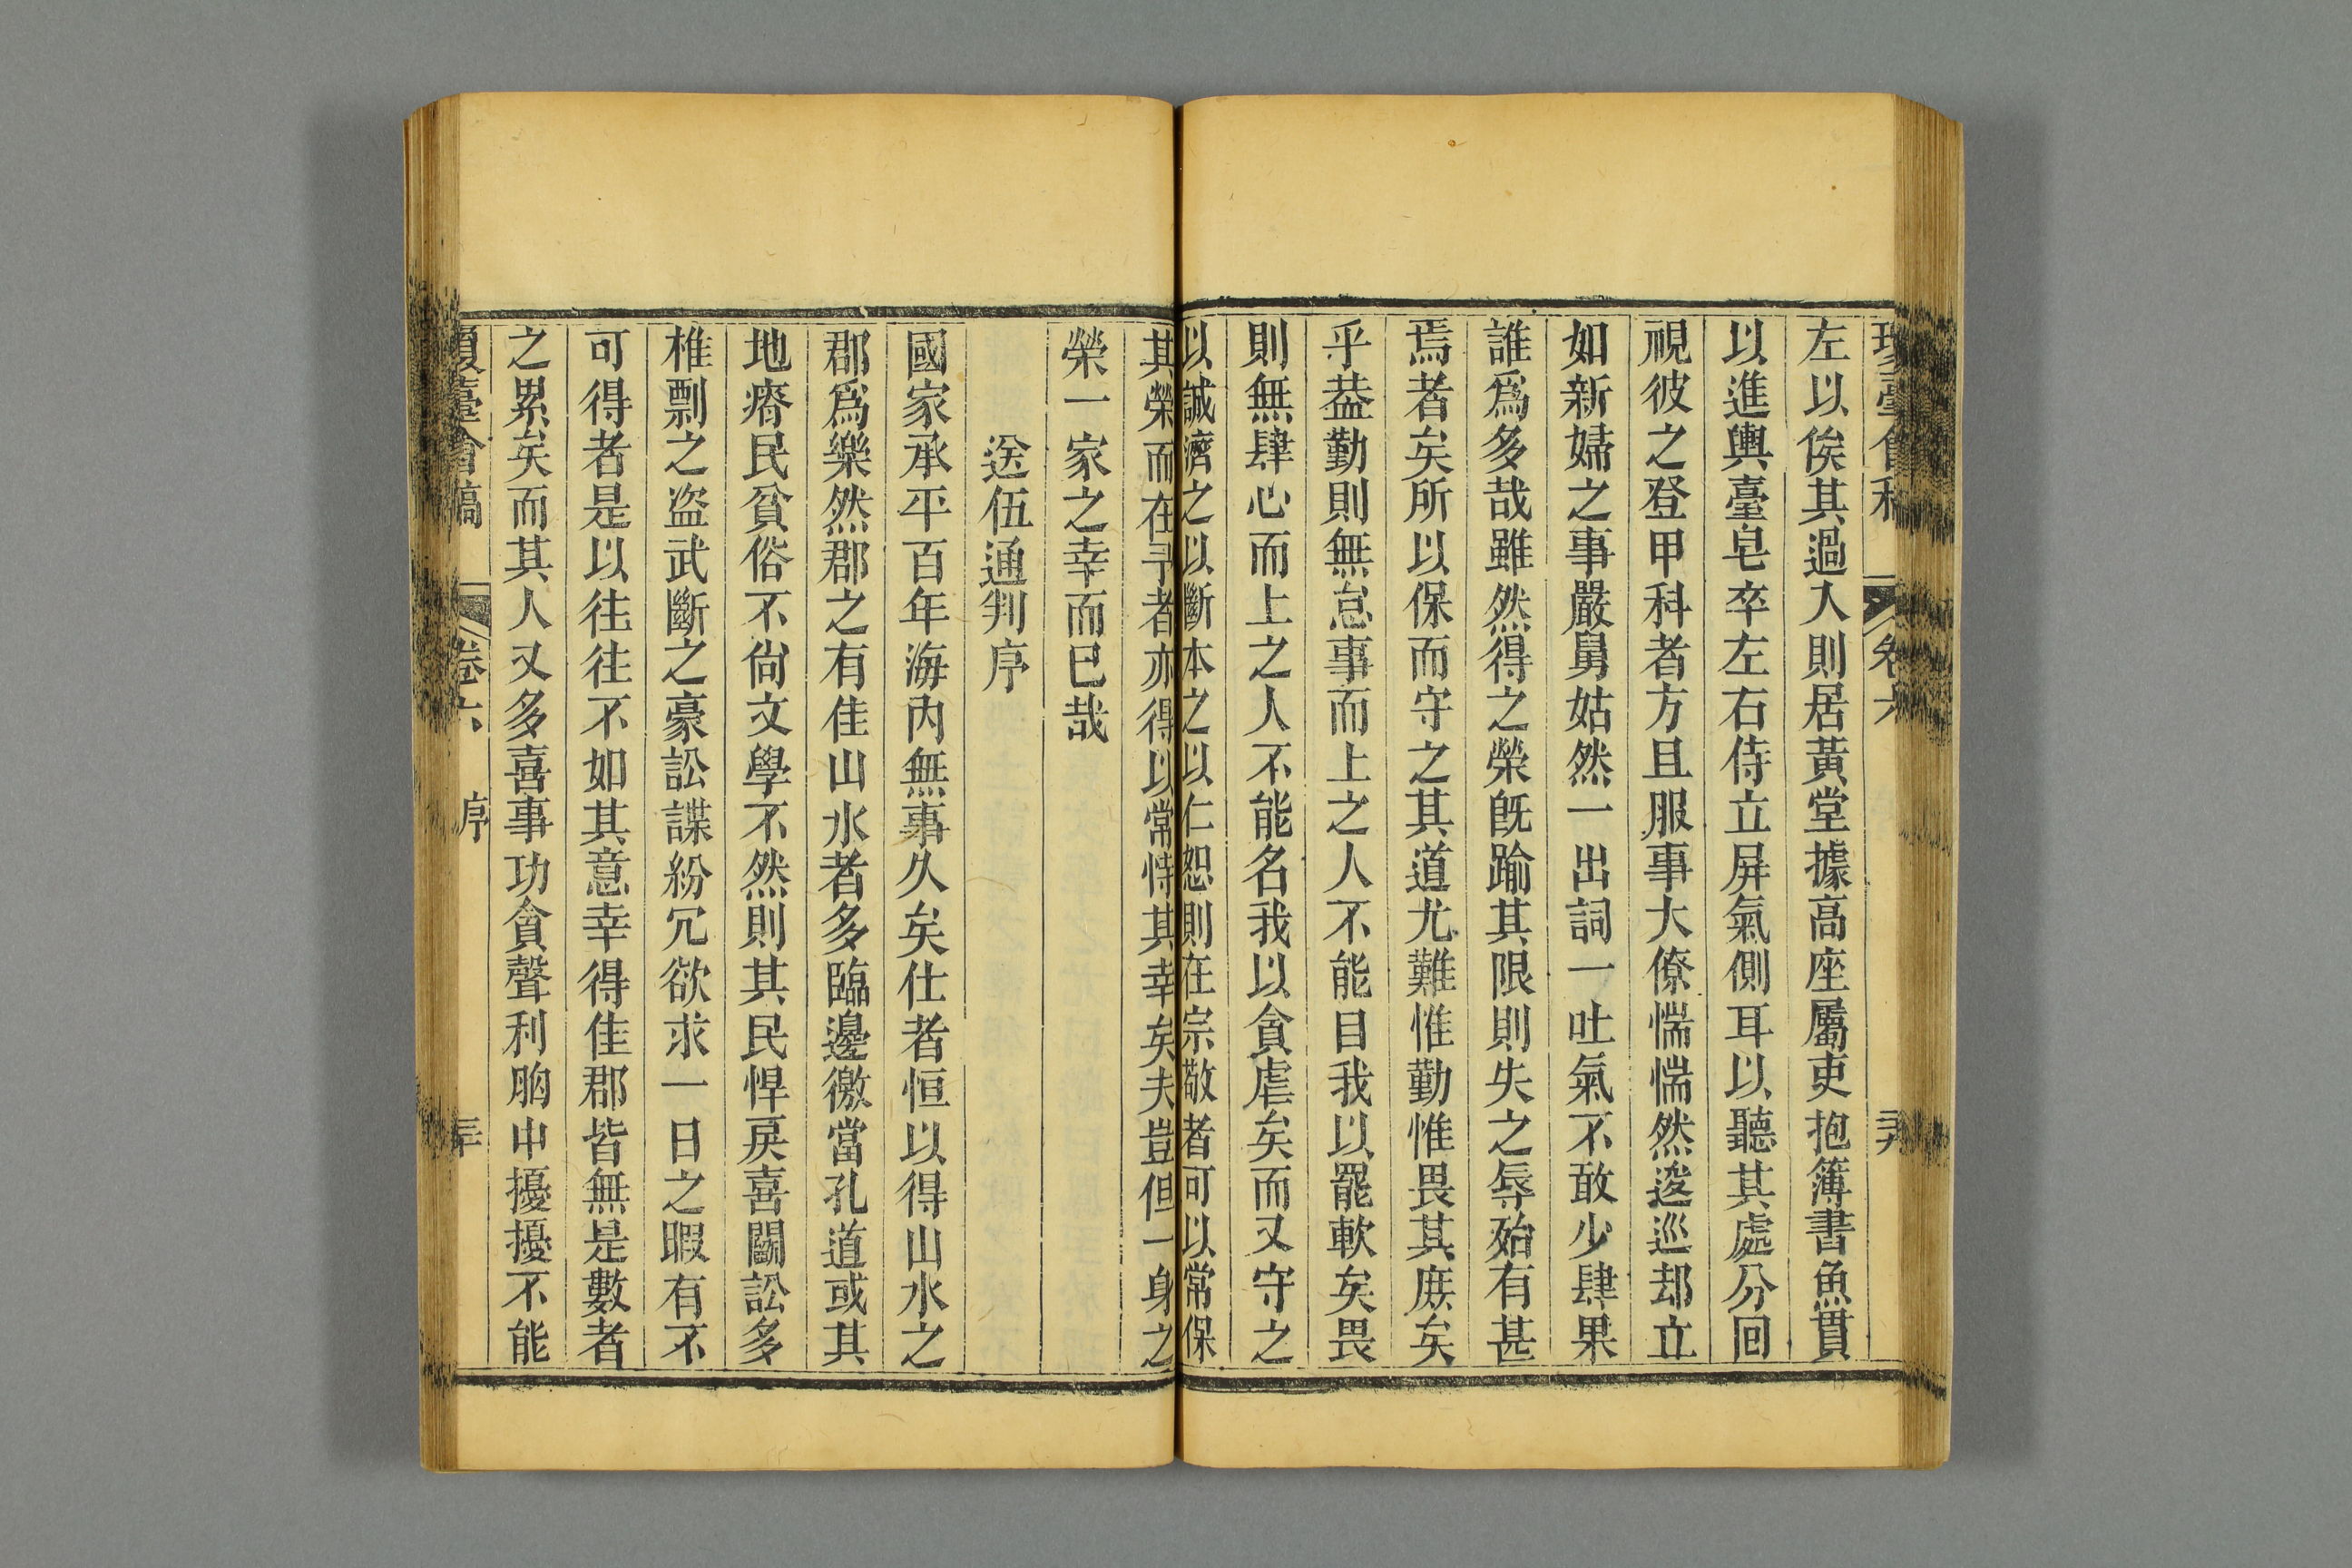 瓊臺會稿 卷六 芖
左以俟其過入則居黃堂據高座屬吏抱簿書魚貫
以進輿臺皂卒左右侍立屏氣側耳以聽其處分回
視彼之登甲科者方且服事大僚惴惴然逡巡却立
如新婦之事嚴舅姑然一出詞一吐氣不敢少肆果
誰爲多哉雖然得之榮旣踰其限則失之辱殆有甚
焉者矣所以保而守之其道尤難惟勤惟畏其庶矣
乎葢勤則無怠事而上之人不能目我以罷軟矣畏
則無肆心而上之人不能名我以貪虐矣而又守之
以誠濟之以斷本之以仁恕則在宗敬者可以常保
其榮而在予者亦得以常恃其幸矣夫豈但一身之
榮一家之幸而已哉
送伍通判序
國家承平百年海內無事久矣仕者恒以得山水之
郡爲樂然郡之有佳山水者多臨邊徼當孔道或其
地瘠民貧俗不尙文學不然則其民悍戾喜鬭訟多
椎剽之盜武斷之豪訟諜紛冗欲求一日之暇有不
可得者是以往往不如其意幸得佳郡皆無是數者
之累矣而其人又多喜事功貪聲利胸中擾擾不能
瓊臺會稿 卷六 序 三十